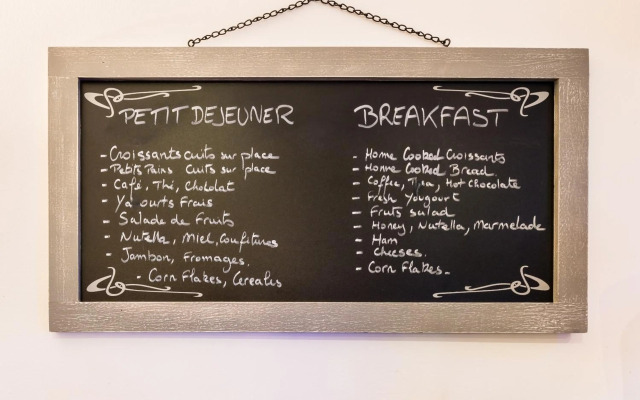 PETIT DEJEUNER
- Croissants cuits sur place
- Petits Pains cuits sur place
- Café, Thé, Chocolat
- Yaourts Frais
- Salade de Fruits
- Nutella, Miel, Confitures
- Jambon, Fromages.
- Corn Flakes, Cereales
BREAKFAST
- Home Cooked Croissants
- Home Cooked Bread.
- Coffee, Tea, Hot Chocolate
- Fresh Yougourt
- Fruits salad
- Honey, Nutella, Marmelade
- Ham
- Cheeses.
- Corn Flakes-